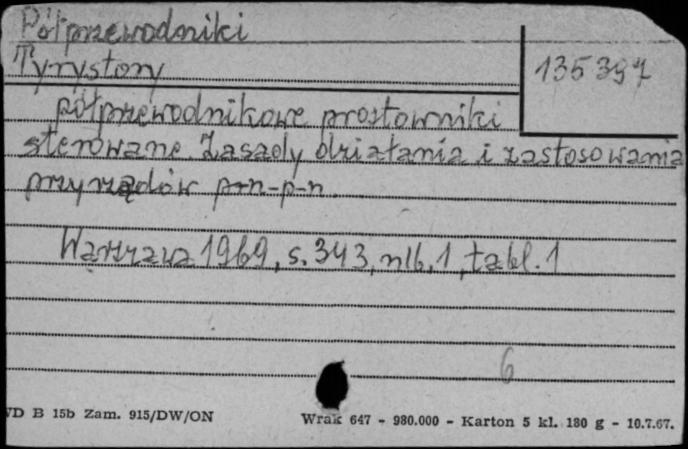 Półprzewodniki
Tyrystory
135397
półprzewodnikowe prostowniki
sterowane. Zasady działania i zastosowania
przyrządów p-n-p-n.
Warszawa 1969, s. 343, nlb. 1, tabl. 1
6
VD B 15b Zam. 915/DW/ON
Wrak 647 - 980.000 - Karton 5 kl. 180 g - 10.7.67.